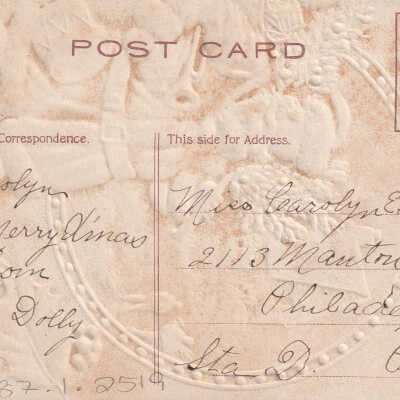 POST CARD
Correspondence.
This side for Address.
olyn
Merry Xmas
Dolly
Miss Carolyn E
2113 Manton
Philade
Sta D.
87.1.2519